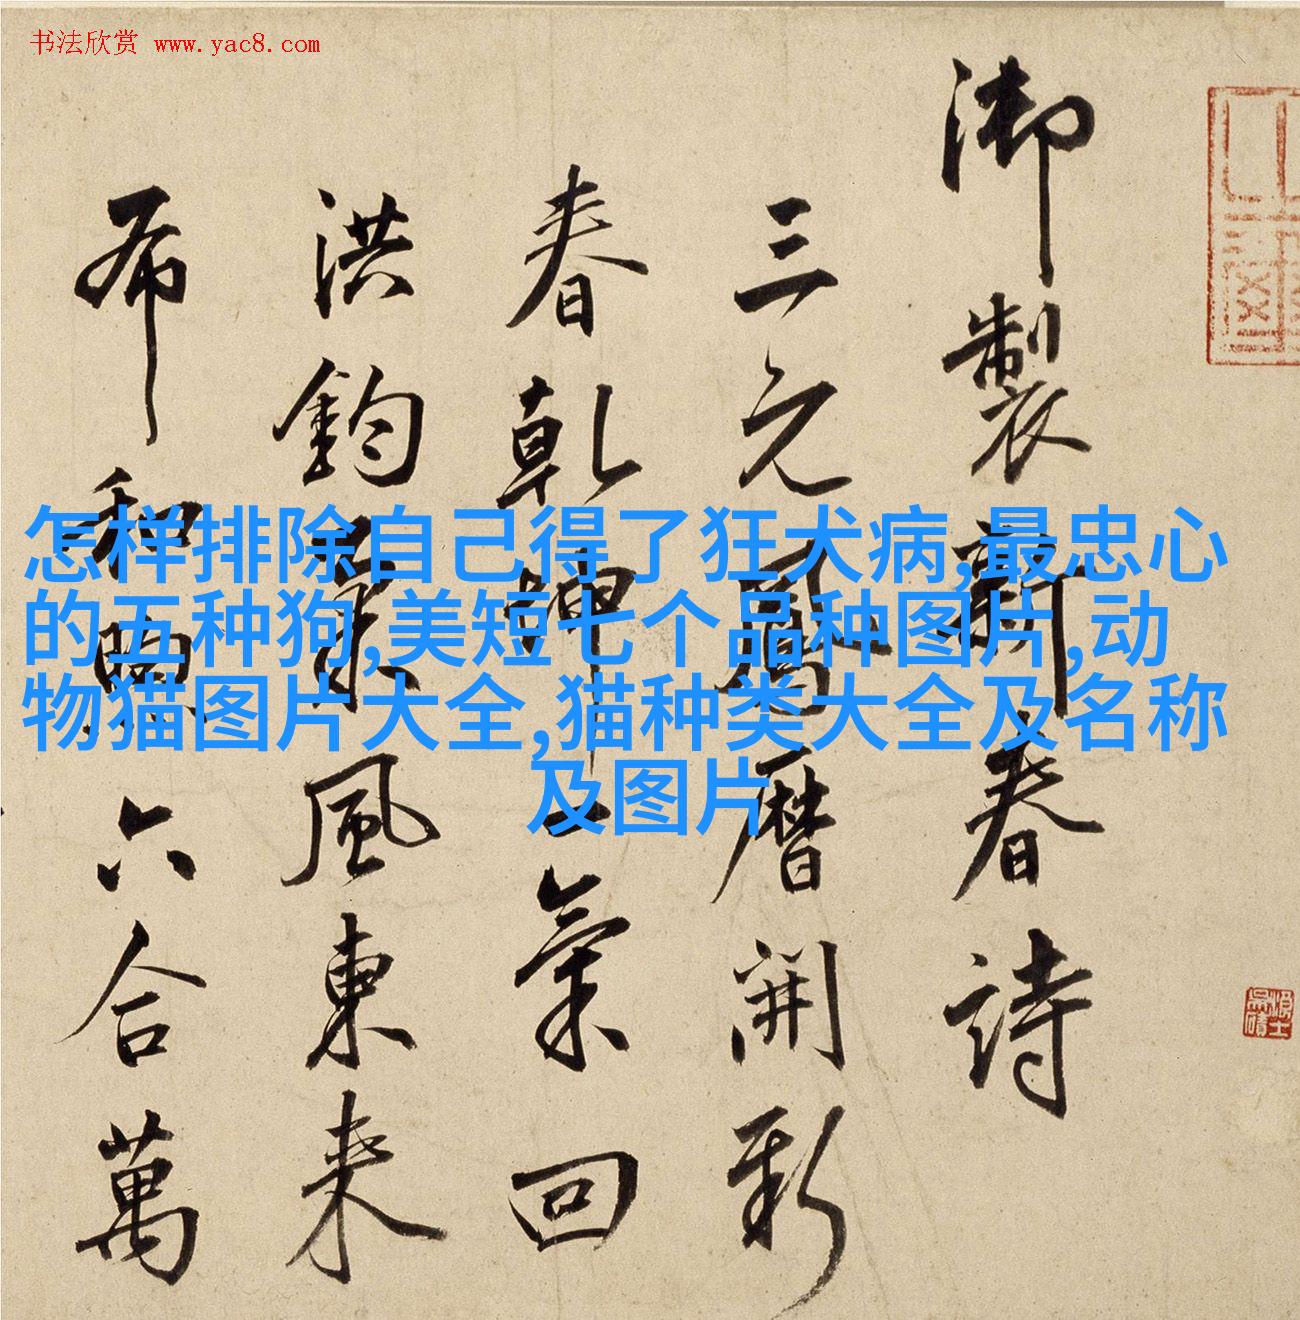 书法欣赏 www.yac8.com
怎样排除自己得了狂犬病,最忠心
的五种狗,美短七个品种图片,动
物猫图片大全,猫种类大全及名称
及图片
御製新春詩
三元鳳暦開新
春乾坤一氣回
洪鈞風東来
布和煦六合萬